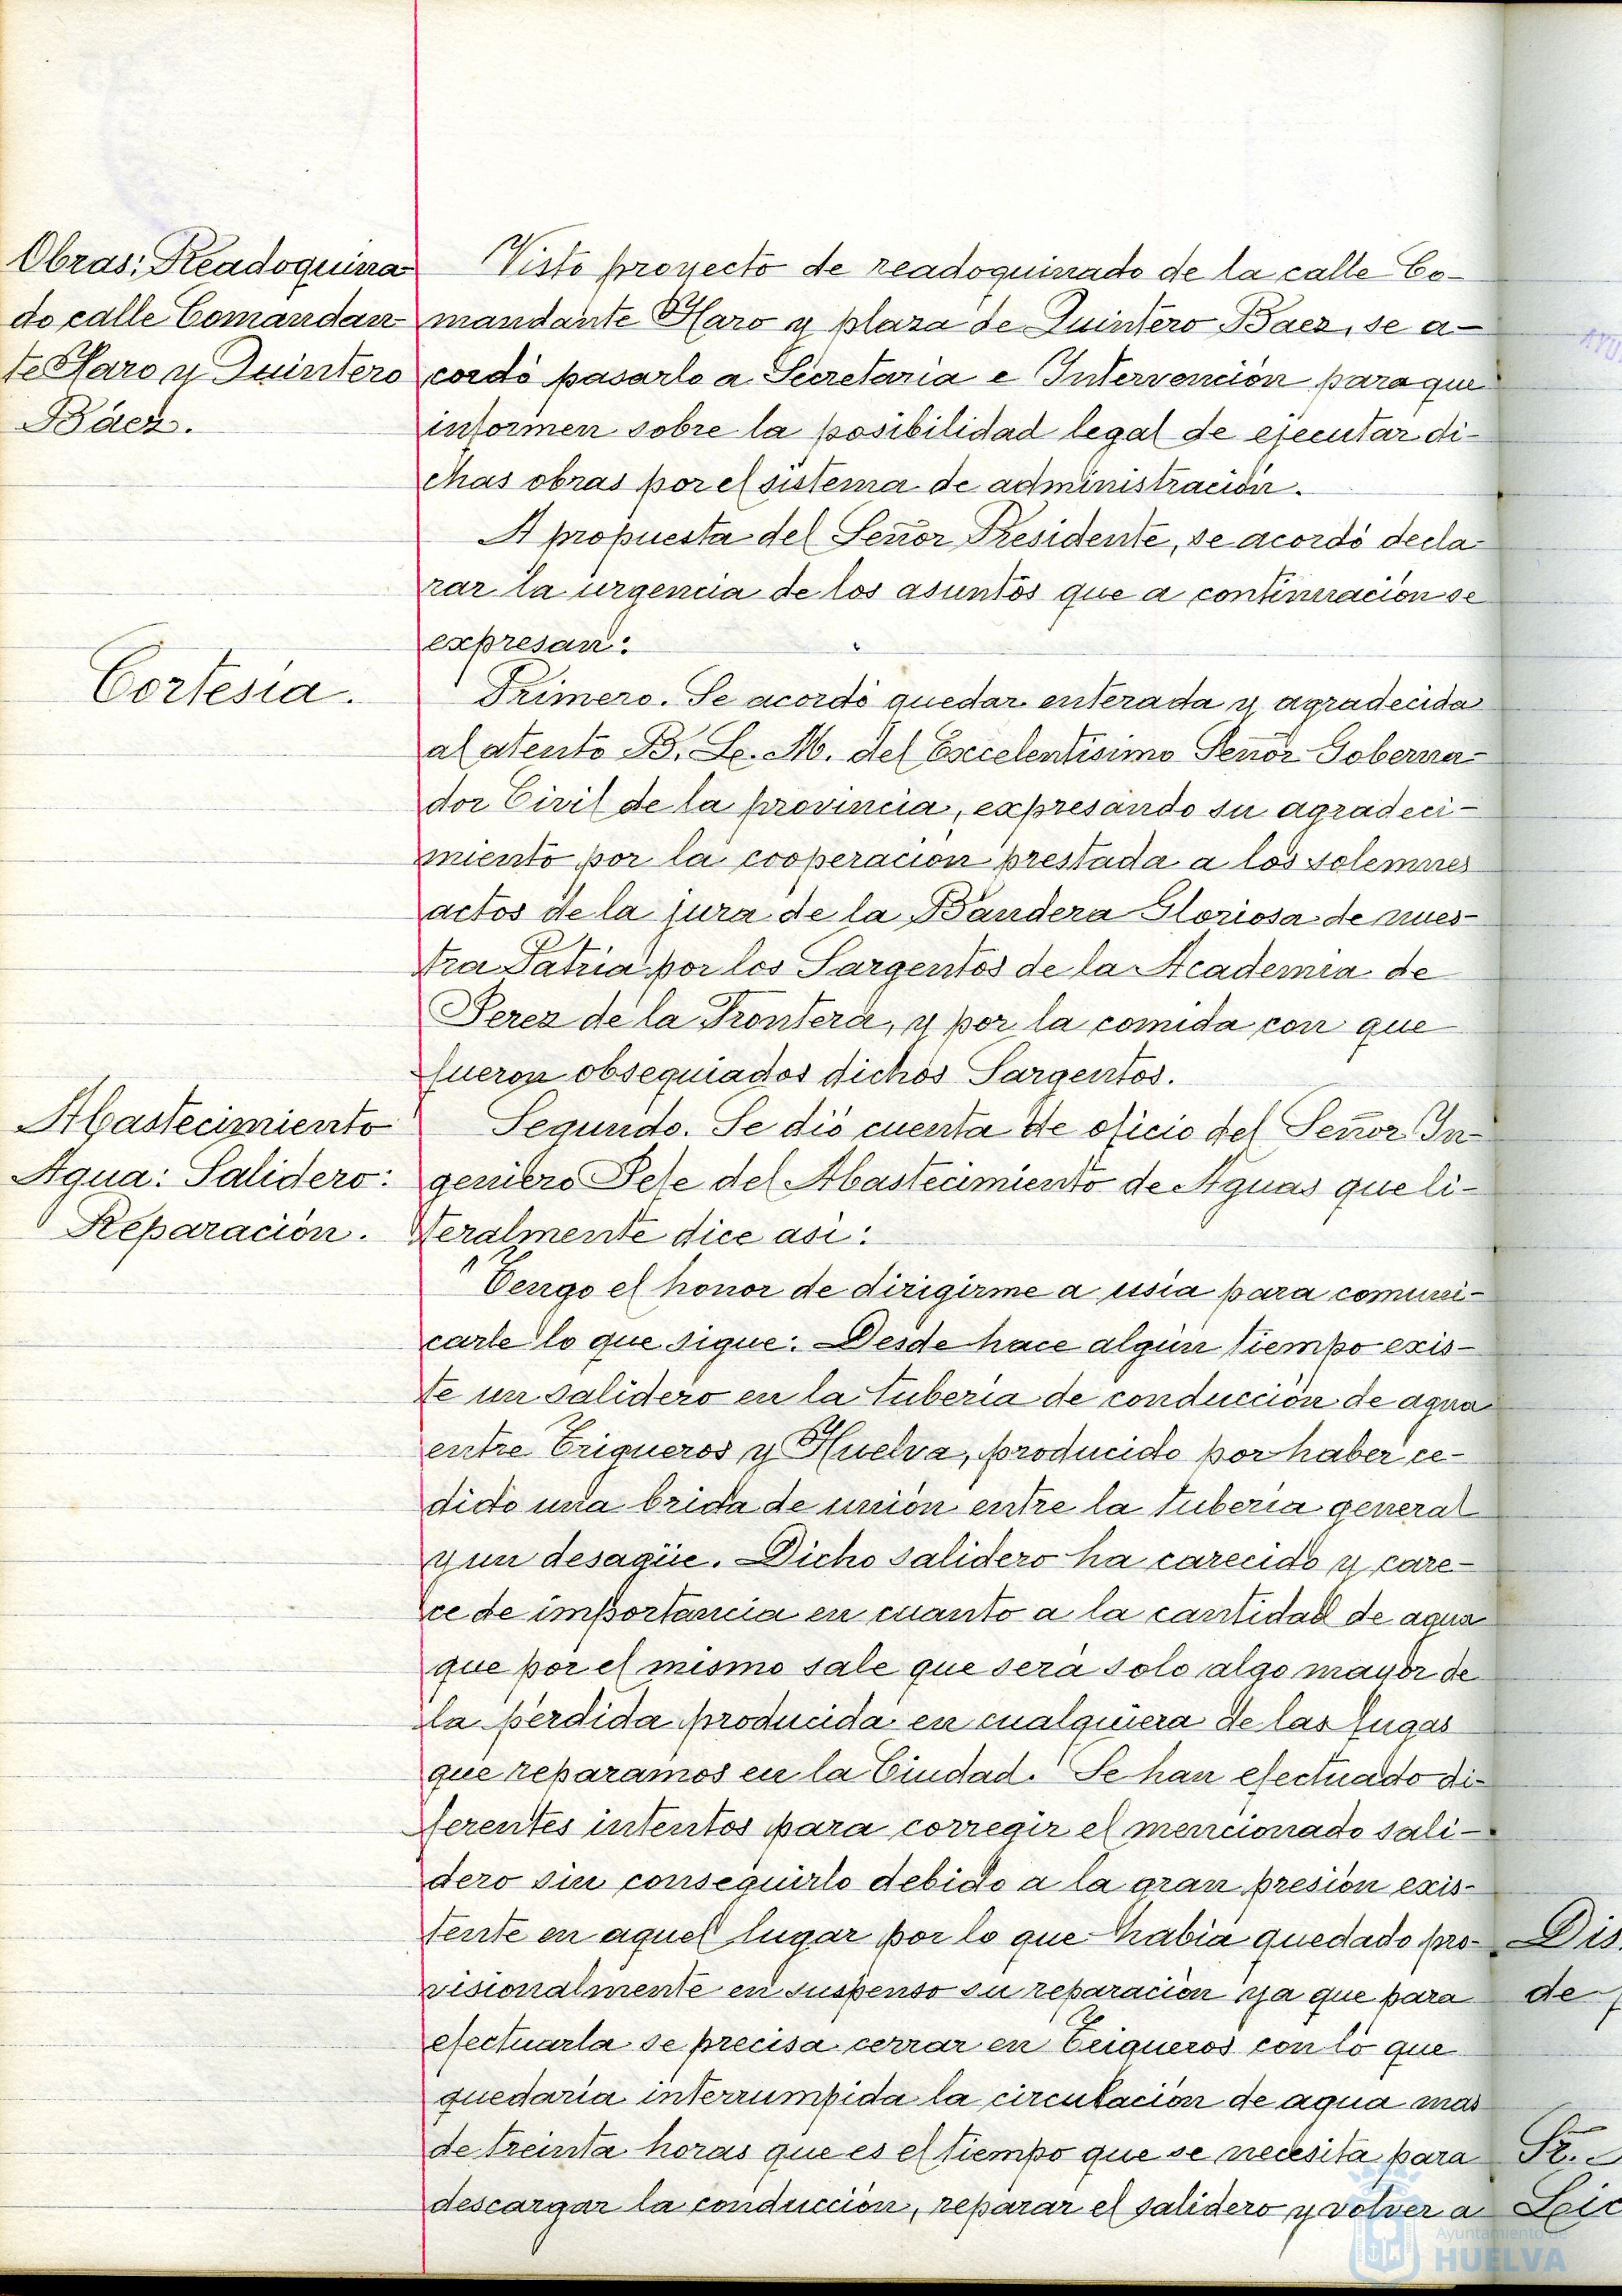 Obras: Readoquina
do calle Comandan
te Haro y Quintero
Báez.
Visto proyecto de readoquinado de la calle Co-
mandante Haro y plaza de Quintero Baez, se a-
cordó pasarlo a Secretaria e Intervención para que
informen sobre la posibilidad legal de ejecutar di-
chas obras por el sistema de administración.
A propuesta del Señor Presidente, se acordó decla-
rar la urgencia de los asuntos que a continuación se
expresan:
Cortesia.
Primero. Se acordó quedar enterada y agradecida
al atento B. L. M. del Excelentísimo Señor Goberna-
dor Civil de la provincia, expresando su agradeci-
miento por la cooperación prestada a los solemnes
actos de la jura de la Bandera Gloriosa de nues-
tra Patria por los Sargentos de la Academia de
Jerez de la Frontera, y por la comida con que
fueron obsequiados dichos Sargentos.
Abastecimiento
Agua: Salidero:
Reparación.
Segundo. Se dió cuenta de oficio del Señor In-
geniero Jefe del Abastecimiento de Aguas que li-
teralmente dice asi:
"Tengo el honor de dirigirme a usia para comuni-
carle lo que sigue: Desde hace algún tiempo exis-
te un salidero en la tuberia de conducción de agua
entre Trigueros y Huelva, producido por haber ce-
dido una brida de unión entre la tuberia general
y un desagüe. Dicho salidero ha carecido y care-
ce de importancia en cuanto a la cantidad de agua
que por el mismo sale que será solo algo mayor de
la pérdida producida en cualquiera de las fugas
que reparamos en la Ciudad. Se han efectuado di-
ferentes intentos para corregir el mencionado sali-
dero sin conseguirlo debido a la gran presión exis-
tente en aquel lugar por lo que habia quedado pro-
visionalmente en suspenso su reparación ya que para
efectuarla se precisa cerrar en Trigueros con lo que
quedaria interrumpida la circulación de agua mas
de treinta horas que es el tiempo que se necesita para
descargar la conducción, reparar el salidero y volver a
Dis
de
Sr.
Ayuntamiento
HUELVA